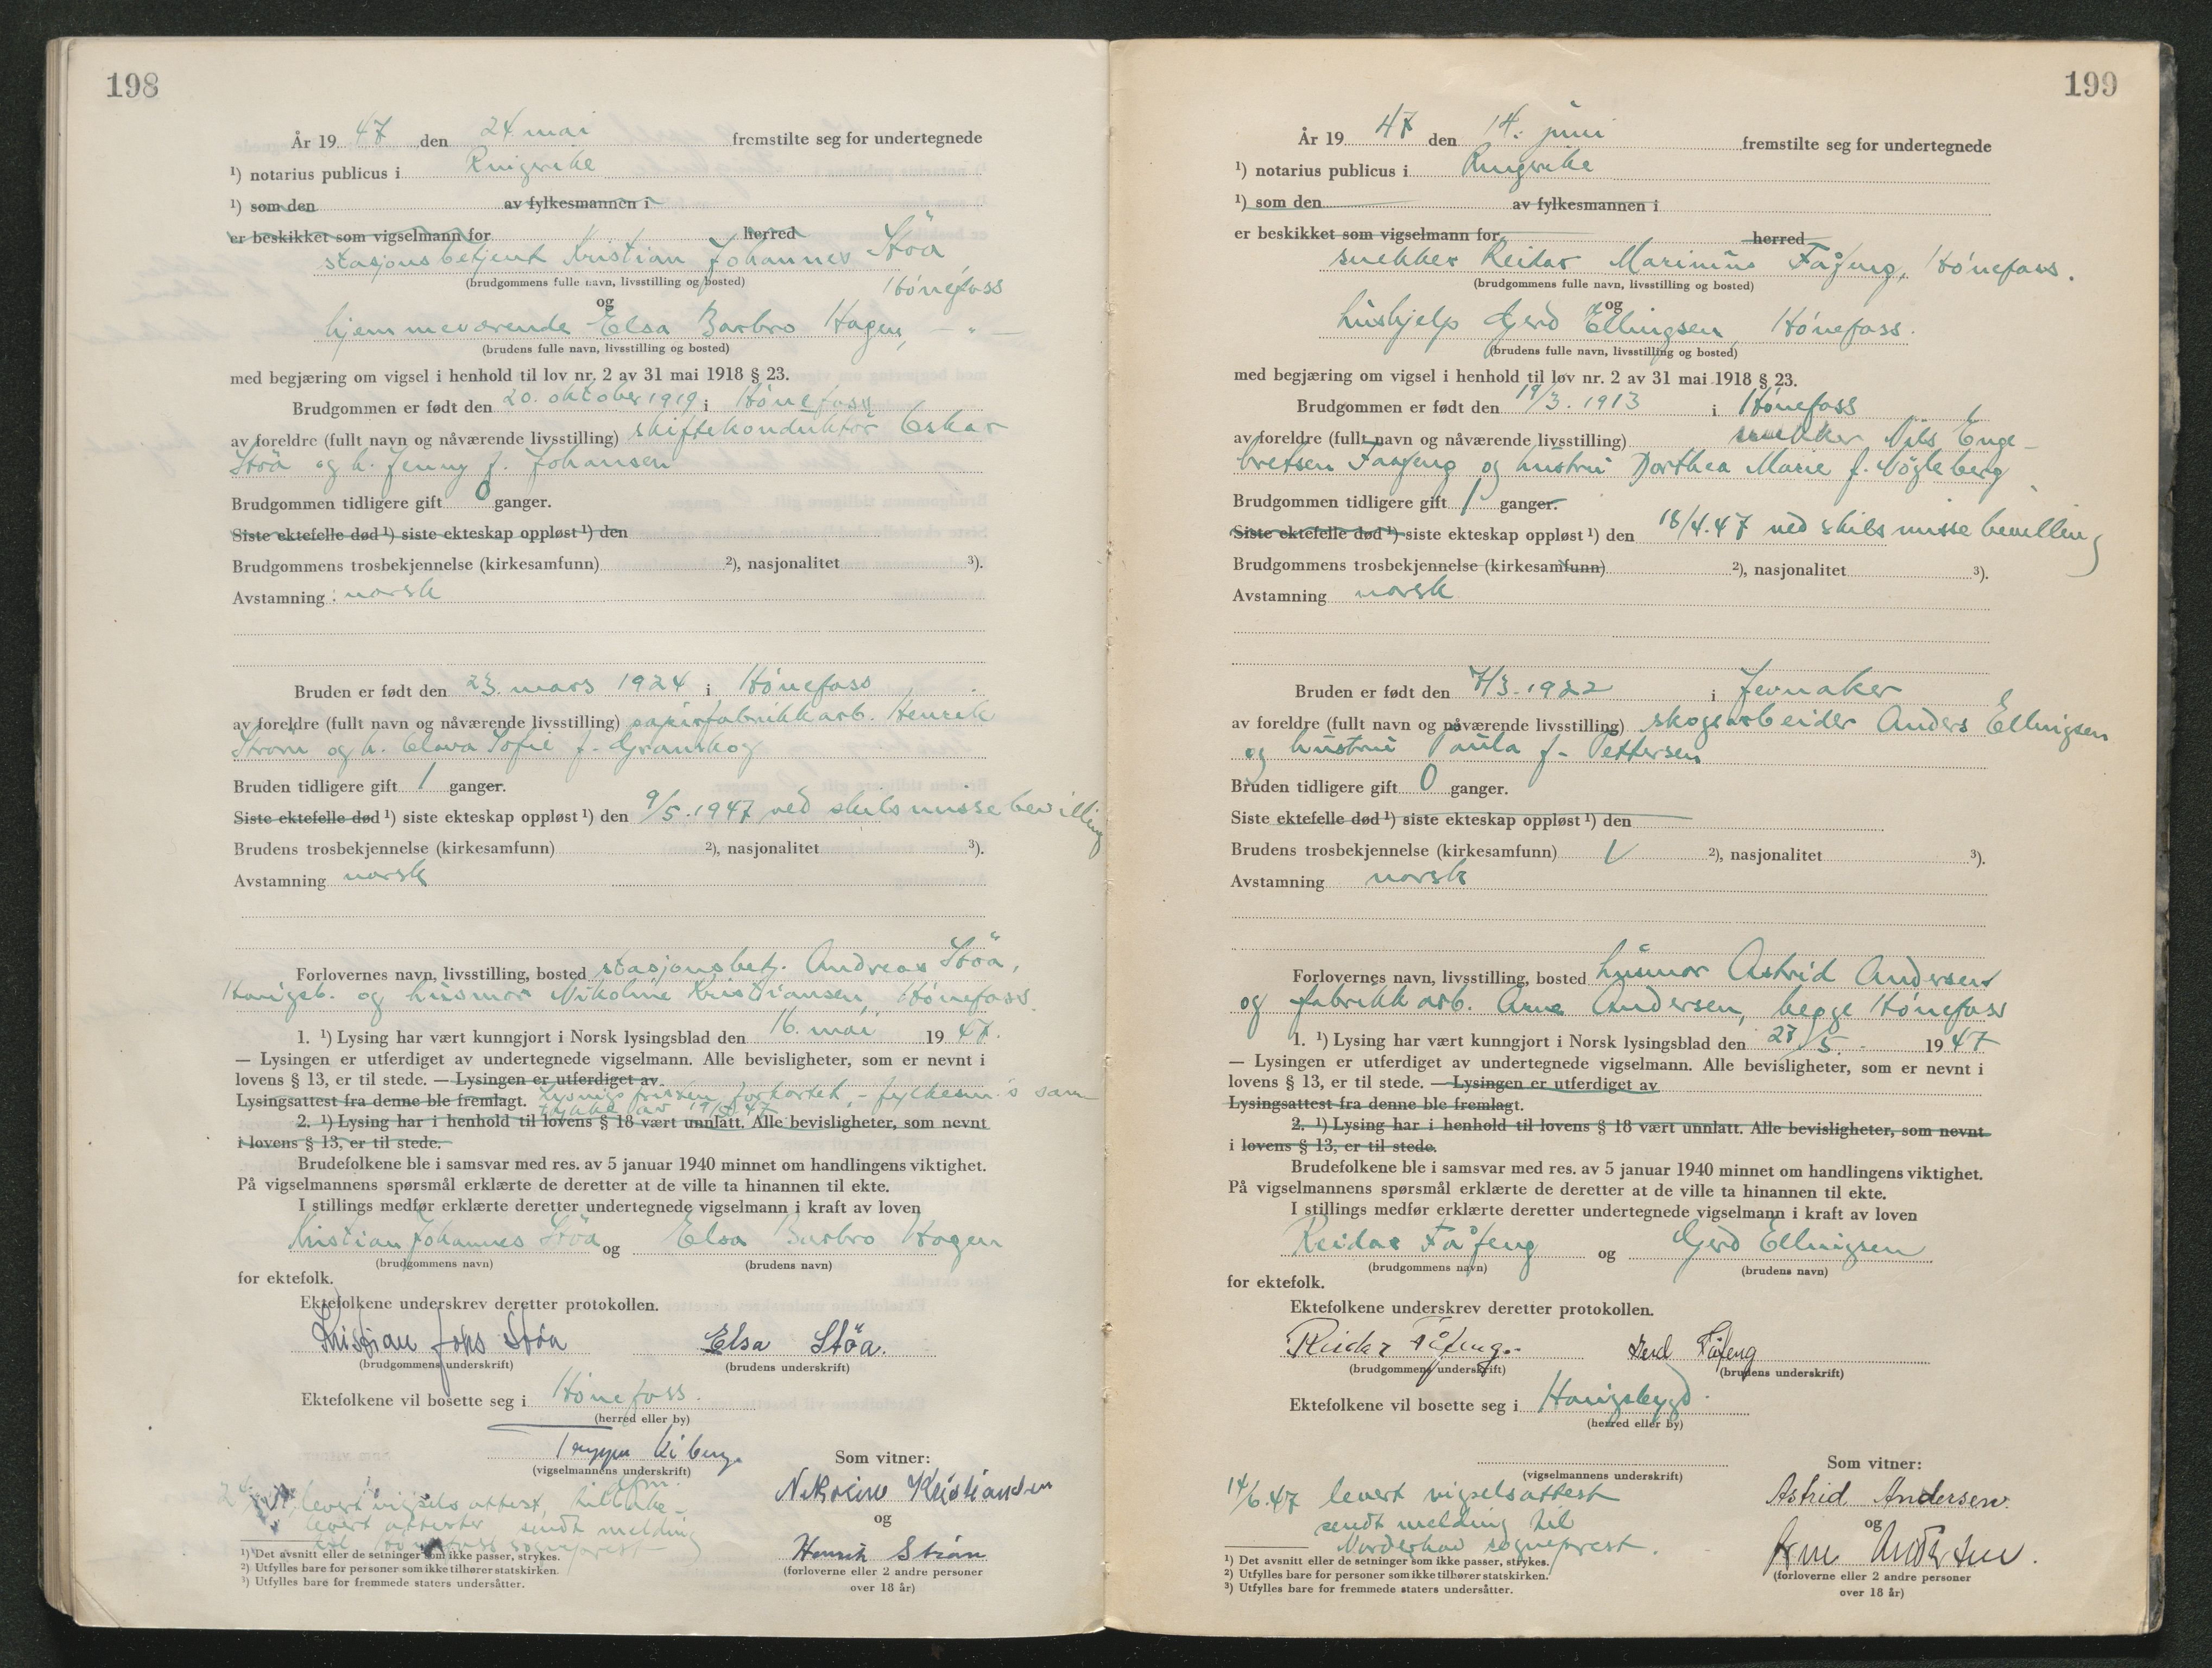 198
År 19 47 den 24 mai fremstilte seg for undertegnede
¹) notarius publicus i Ringerike
¹) som den av fylkesmannen i
er beskikket som vigselmann for herred
stasjonsbetjent Kristian Johannes Stöa
(brudgommens fulle navn, livsstilling og bosted) Hönefoss
og
hjemmeværende Elsa Barbro Hagen, — " —
(brudens fulle navn, livsstilling og bosted)
med begjæring om vigsel i henhold til lov nr. 2 av 31 mai 1918 § 23.
Brudgommen er født den 20. oktober 1919 i Hönefoss
av foreldre (fullt navn og nåværende livsstilling) skiftekonduktör Oskar
Stöa og h. Jenny f. Johansen
Brudgommen tidligere gift 0 ganger.
Siste ektefelle død ¹) siste ekteskap oppløst ¹) den
Brudgommens trosbekjennelse (kirkesamfunn) ²), nasjonalitet ³).
Avstamning : norsk
Bruden er født den 23. mars 1924 i Hönefoss
av foreldre (fullt navn og nåværende livsstilling) papirfabrikkarb. Henrik
Strøm og h. Clara Sofie f. Granskog
Bruden tidligere gift 1 ganger.
Siste ektefelle død ¹) siste ekteskap oppløst ¹) den 9/5.1947 ved skilsmissebevilling
Brudens trosbekjennelse (kirkesamfunn) ²), nasjonalitet ³).
Avstamning norsk
Forlovernes navn, livsstilling, bosted stasjonsbetj. Andreas Stöa,
Haugsb. og husmor Nikoline Kristiansen, Hönefoss
1. ¹) Lysing har vært kunngjort i Norsk lysingsblad den 16. mai 19 47.
— Lysingen er utferdiget av undertegnede vigselmann. Alle bevisligheter, som er nevnt i
lovens § 13, er til stede. — Lysingen er utferdiget av
Lysingsattest fra denne ble fremlagt. Lysingsfristen forkortet, - fylkesm.'s sam
tykke av 19/5 47
2. ¹) Lysing har i henhold til lovens § 18 vært unnlatt. Alle bevisligheter, som nevnt
i lovens § 13, er til stede.
Brudefolkene ble i samsvar med res. av 5 januar 1940 minnet om handlingens viktighet.
På vigselmannens spørsmål erklærte de deretter at de ville ta hinannen til ekte.
I stillings medfør erklærte deretter undertegnede vigselmann i kraft av loven
Kristian Johannes Stöa og Elsa Barbro Hagen
(brudgommens navn) (brudens navn)
for ektefolk.
Ektefolkene underskrev deretter protokollen.
Kristian Johs Stöa Elsa Stöa.
(brudgommens underskrift) (brudens underskrift)
Ektefolkene vil bosette seg i Hönefoss.
(herred eller by)
(vigselmannens underskrift)
Som vitner:
levert vigselsattest, tilbake-
levert attester, sendt melding
til Hönefoss sogneprest
Nikoline Kristiansen
og
Henrik Strøm
(forloverne eller 2 andre personer
over 18 år)
¹) Det avsnitt eller de setninger som ikke passer, strykes.
²) Utfylles bare for personer som ikke tilhører statskirken.
³) Utfylles bare for fremmede staters undersåtter.
199
År 19 47 den 14. juni fremstilte seg for undertegnede
¹) notarius publicus i Ringerike
¹) som den av fylkesmannen i
er beskikket som vigselmann for herred
snekker Reidar Marinius Fåfeng, Hönefoss.
(brudgommens fulle navn, livsstilling og bosted)
og
hushjelp Gerd Ellingsen, Hönefoss.
(brudens fulle navn, livsstilling og bosted)
med begjæring om vigsel i henhold til lov nr. 2 av 31 mai 1918 § 23.
Brudgommen er født den 19/3.1913 i Hönefoss
av foreldre (fullt navn og nåværende livsstilling) snekker Nils Enge-
bretsen Faafeng og hustru Dorthea Marie f. Vögleberg
Brudgommen tidligere gift 1 ganger.
Siste ektefelle død ¹) siste ekteskap oppløst ¹) den 18/4.47 ved skilsmissebevilling
Brudgommens trosbekjennelse (kirkesamfunn) ²), nasjonalitet ³).
Avstamning norsk
Bruden er født den 7/3.1922 i Jevnaker
av foreldre (fullt navn og nåværende livsstilling) skogsarbeider Anders Ellingsen
og hustru Paula f. Pettersen
Bruden tidligere gift 0 ganger.
Siste ektefelle død ¹) siste ekteskap oppløst ¹) den
Brudens trosbekjennelse (kirkesamfunn) ²), nasjonalitet ³).
Avstamning norsk
Forlovernes navn, livsstilling, bosted husmor Astrid Andersen
og fabrikkarb. Arne Andersen, begge Hönefoss
1. ¹) Lysing har vært kunngjort i Norsk lysingsblad den 27/5. 19 47
— Lysingen er utferdiget av undertegnede vigselmann. Alle bevisligheter, som er nevnt i
lovens § 13, er til stede. — Lysingen er utferdiget av
Lysingsattest fra denne ble fremlagt.
2. ¹) Lysing har i henhold til lovens § 18 vært unnlatt. Alle bevisligheter, som nevnt
i lovens § 13, er til stede.
Brudefolkene ble i samsvar med res. av 5 januar 1940 minnet om handlingens viktighet.
På vigselmannens spørsmål erklærte de deretter at de ville ta hinannen til ekte.
I stillings medfør erklærte deretter undertegnede vigselmann i kraft av loven
Reidar Fåfeng og Gerd Ellingsen
(brudgommens navn) (brudens navn)
for ektefolk.
Ektefolkene underskrev deretter protokollen.
Reidar Fåfeng. Gerd Fåfeng
(brudgommens underskrift) (brudens underskrift)
Ektefolkene vil bosette seg i Haugsbygd.
(herred eller by)
(vigselmannens underskrift)
Som vitner:
14/6.47 levert vigselsattest
sendt melding til
Norderhov sogneprest.
Astrid Andersen.
og
Arne Andersen.
(forloverne eller 2 andre personer
over 18 år)
¹) Det avsnitt eller de setninger som ikke passer, strykes.
²) Utfylles bare for personer som ikke tilhører statskirken.
³) Utfylles bare for fremmede staters undersåtter.